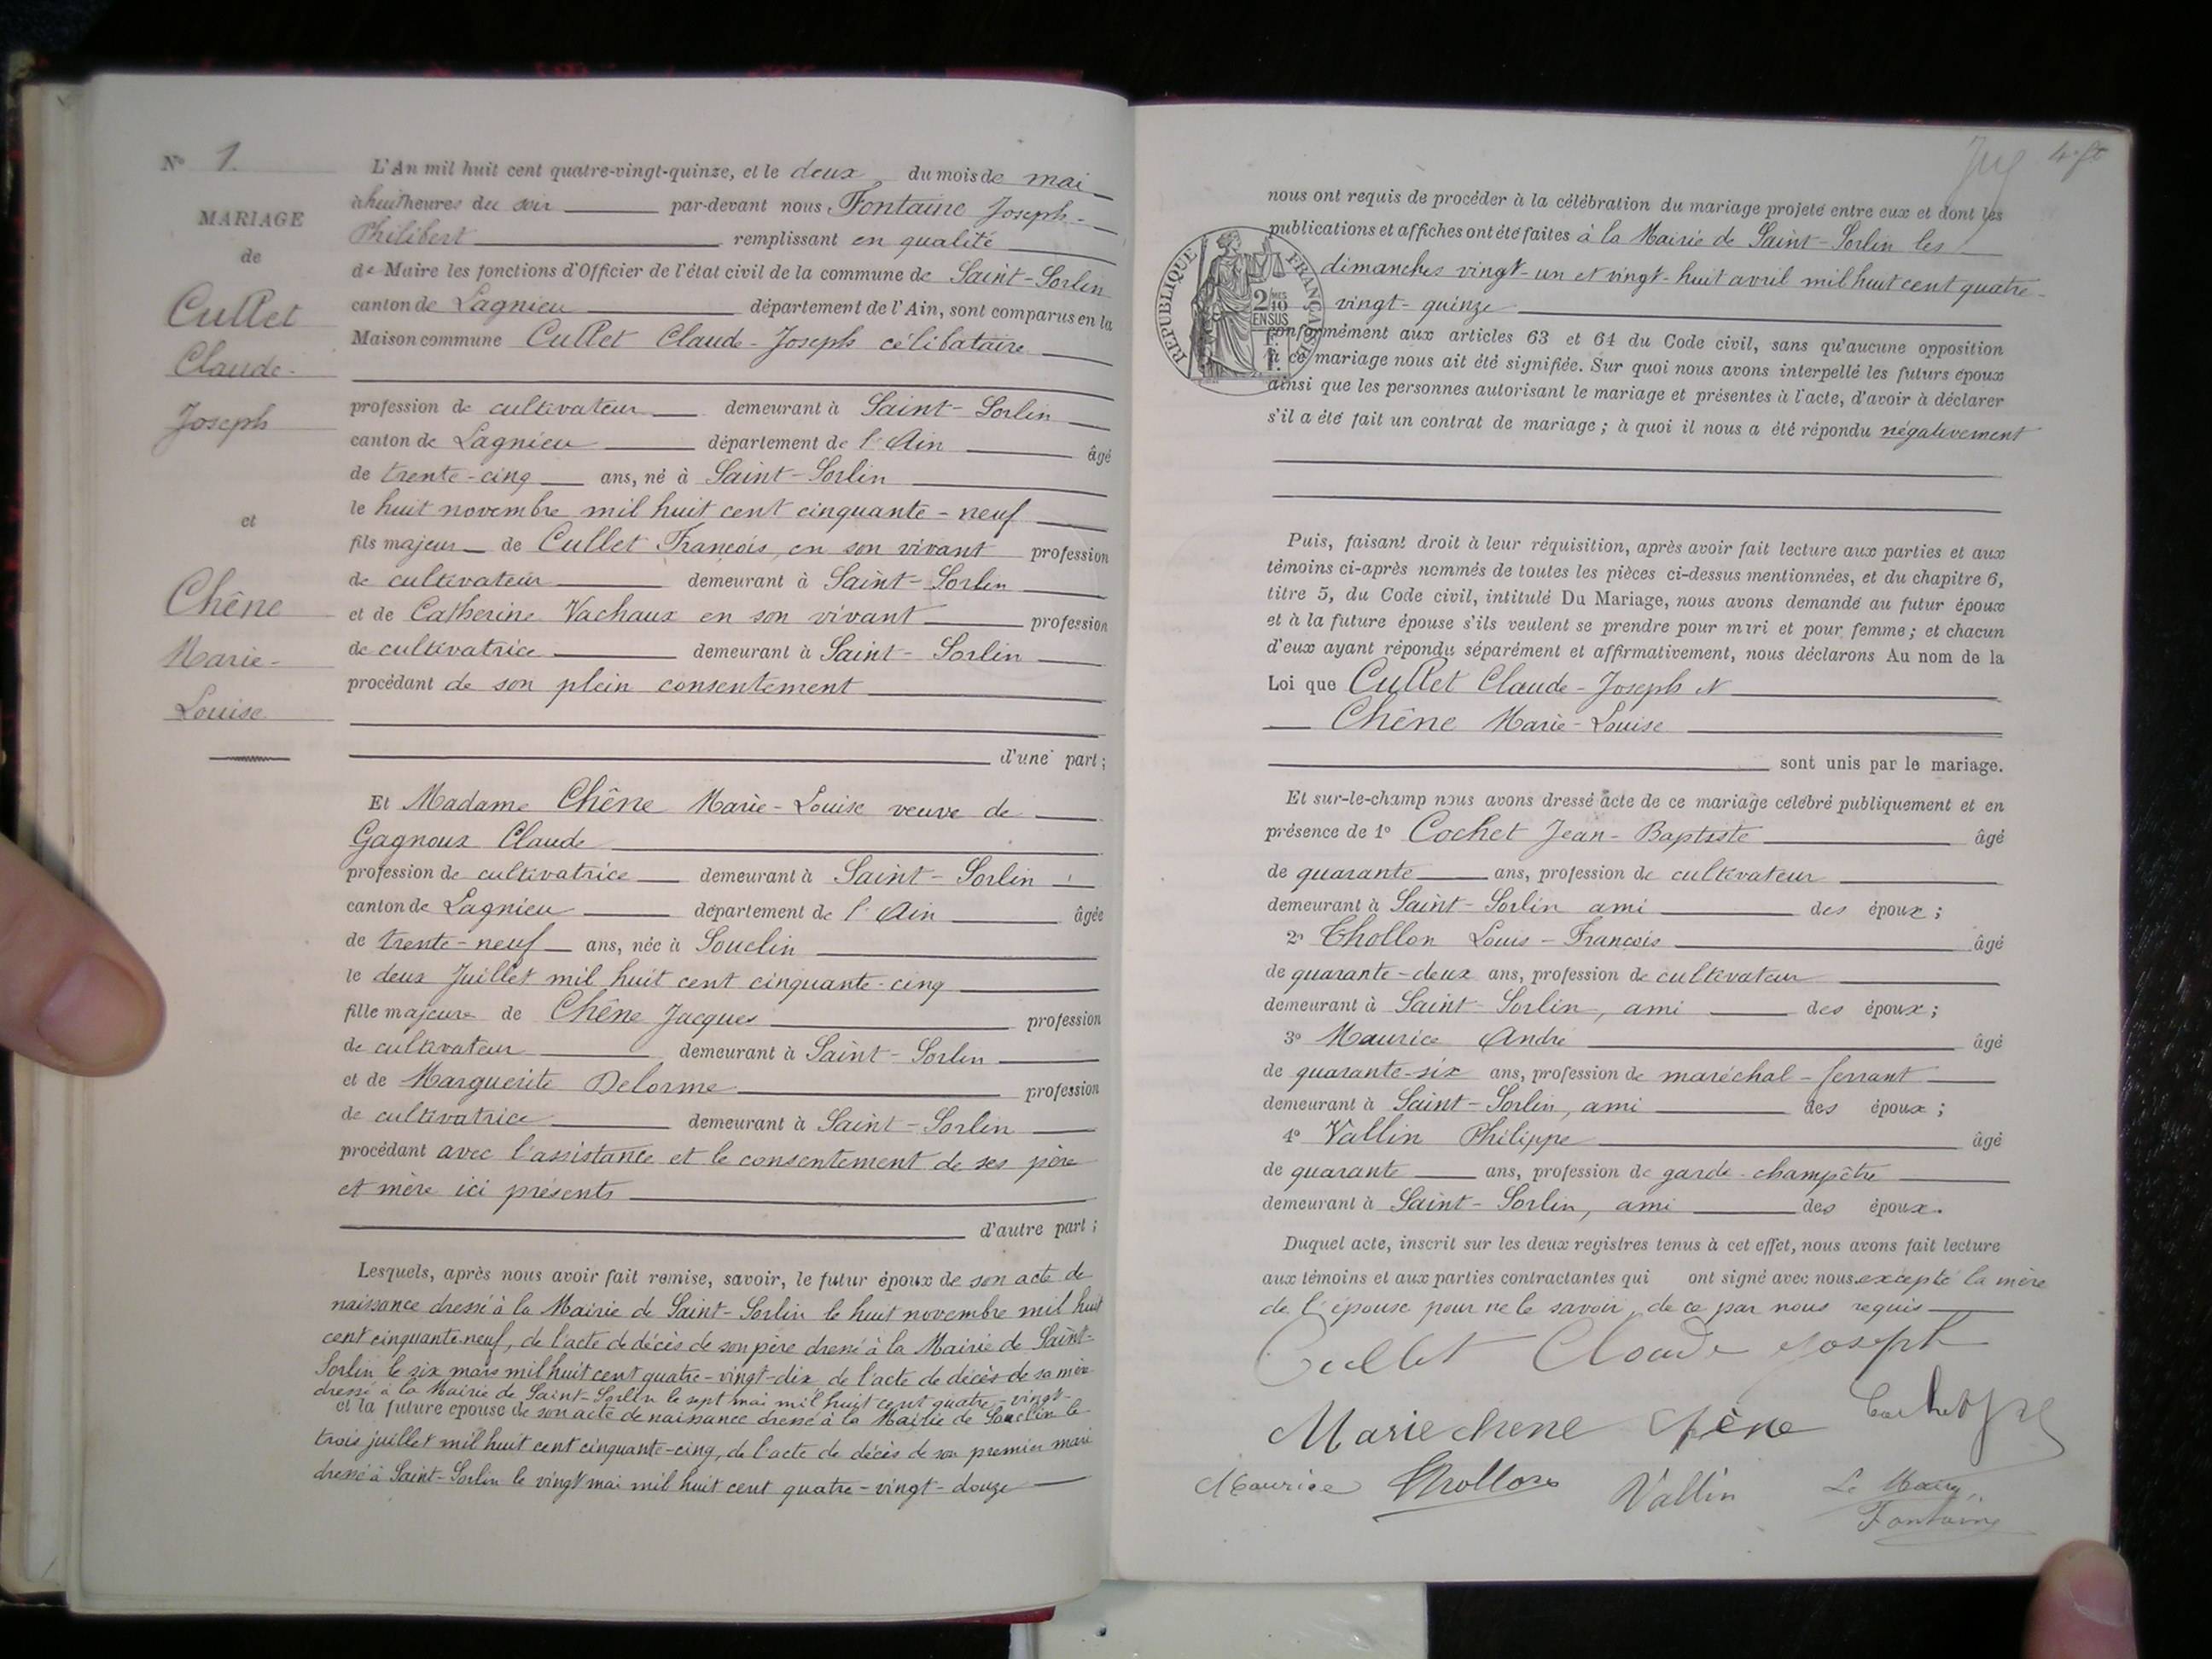 N° 1.
MARIAGE
de
Cullet
Claude-
Joseph
et
Chêne
Marie-
Louise
L'An mil huit cent quatre-vingt-quinze, et le deux du mois de mai
à huit heures du soir par-devant nous Fontaine Joseph-
Philibert remplissant en qualité
de Maire les fonctions d'Officier de l'état civil de la commune de Saint-Sorlin
canton de Lagnieu département de l'Ain, sont comparus en la
Maison commune Cullet Claude-Joseph célibataire
profession de cultivateur demeurant à Saint-Sorlin
canton de Lagnieu département de l'Ain âgé
de trente-cinq ans, né à Saint-Sorlin
le huit novembre mil huit cent cinquante-neuf
fils majeur de Cullet François, en son vivant profession
de cultivateur demeurant à Saint-Sorlin
et de Catherine Vachaux en son vivant profession
de cultivatrice demeurant à Saint-Sorlin
procédant de son plein consentement
d'une part;
Et Madame Chêne Marie-Louise veuve de
Gagnoux Claude
profession de cultivatrice demeurant à Saint-Sorlin
canton de Lagnieu département de l'Ain âgée
de trente-neuf ans, née à Souclin
le deux Juillet mil huit cent cinquante-cinq
fille majeure de Chêne Jacques profession
de cultivateur demeurant à Saint-Sorlin
et de Marguerite Delorme profession
de cultivatrice demeurant à Saint-Sorlin
procédant avec l'assistance et le consentement de ses père
et mère ici présents
d'autre part;
Lesquels, après nous avoir fait remise, savoir, le futur époux de son acte de
naissance dressé à la Mairie de Saint-Sorlin le huit novembre mil huit
cent cinquante-neuf, de l'acte de décès de son père dressé à la Mairie de Saint-
Sorlin le six mars mil huit cent quatre-vingt-dix de l'acte de décès de sa mère
dressé à la Mairie de Saint-Sorlin le sept mai mil huit cent quatre-vingt-
et la future épouse de son acte de naissance dressé à la Mairie de Souclin le
trois juillet mil huit cent cinquante-cinq, de l'acte de décès de son premier mari
dressé à Saint-Sorlin le vingt mai mil huit cent quatre-vingt-douze
nous ont requis de procéder à la célébration du mariage projeté entre eux et dont les
publications et affiches ont été faites à la Mairie de Saint-Sorlin les
dimanches vingt-un et vingt-huit avril mil huit cent quatre-
vingt-quinze
RÉPUBLIQUE FRANÇAISE
conformément aux articles 63 et 64 du Code civil, sans qu'aucune opposition
à ce mariage nous ait été signifiée. Sur quoi nous avons interpellé les futurs époux
ainsi que les personnes autorisant le mariage et présentes à l'acte, d'avoir à déclarer
s'il a été fait un contrat de mariage; à quoi il nous a été répondu négativement
Puis, faisant droit à leur réquisition, après avoir fait lecture aux parties et aux
témoins ci-après nommés de toutes les pièces ci-dessus mentionnées, et du chapitre 6,
titre 5, du Code civil, intitulé Du Mariage, nous avons demandé au futur époux
et à la future épouse s'ils veulent se prendre pour mari et pour femme; et chacun
d'eux ayant répondu séparément et affirmativement, nous déclarons Au nom de la
Loi que Cullet Claude-Joseph
Chêne Marie-Louise
sont unis par le mariage.
Et sur-le-champ nous avons dressé acte de ce mariage célébré publiquement et en
présence de 1° Cochet Jean-Baptiste âgé
de quarante ans, profession de cultivateur
demeurant à Saint-Sorlin ami des époux;
2° Thollon Louis-François âgé
de quarante-deux ans, profession de cultivateur
demeurant à Saint-Sorlin, ami des époux;
3° Maurice André âgé
de quarante-six ans, profession de maréchal-ferrant
demeurant à Saint-Sorlin, ami des époux;
4° Vallin Philippe âgé
de quarante ans, profession de garde-champêtre
demeurant à Saint-Sorlin, ami des époux.
Duquel acte, inscrit sur les deux registres tenus à cet effet, nous avons fait lecture
aux témoins et aux parties contractantes qui ont signé avec nous excepté la mère
de l'épouse pour ne le savoir, de ce par nous requis
Cullet Cloude Joseph
Marie chene Chêne Cochet
Maurice Thollon Vallin Le Maire,
Fontaine